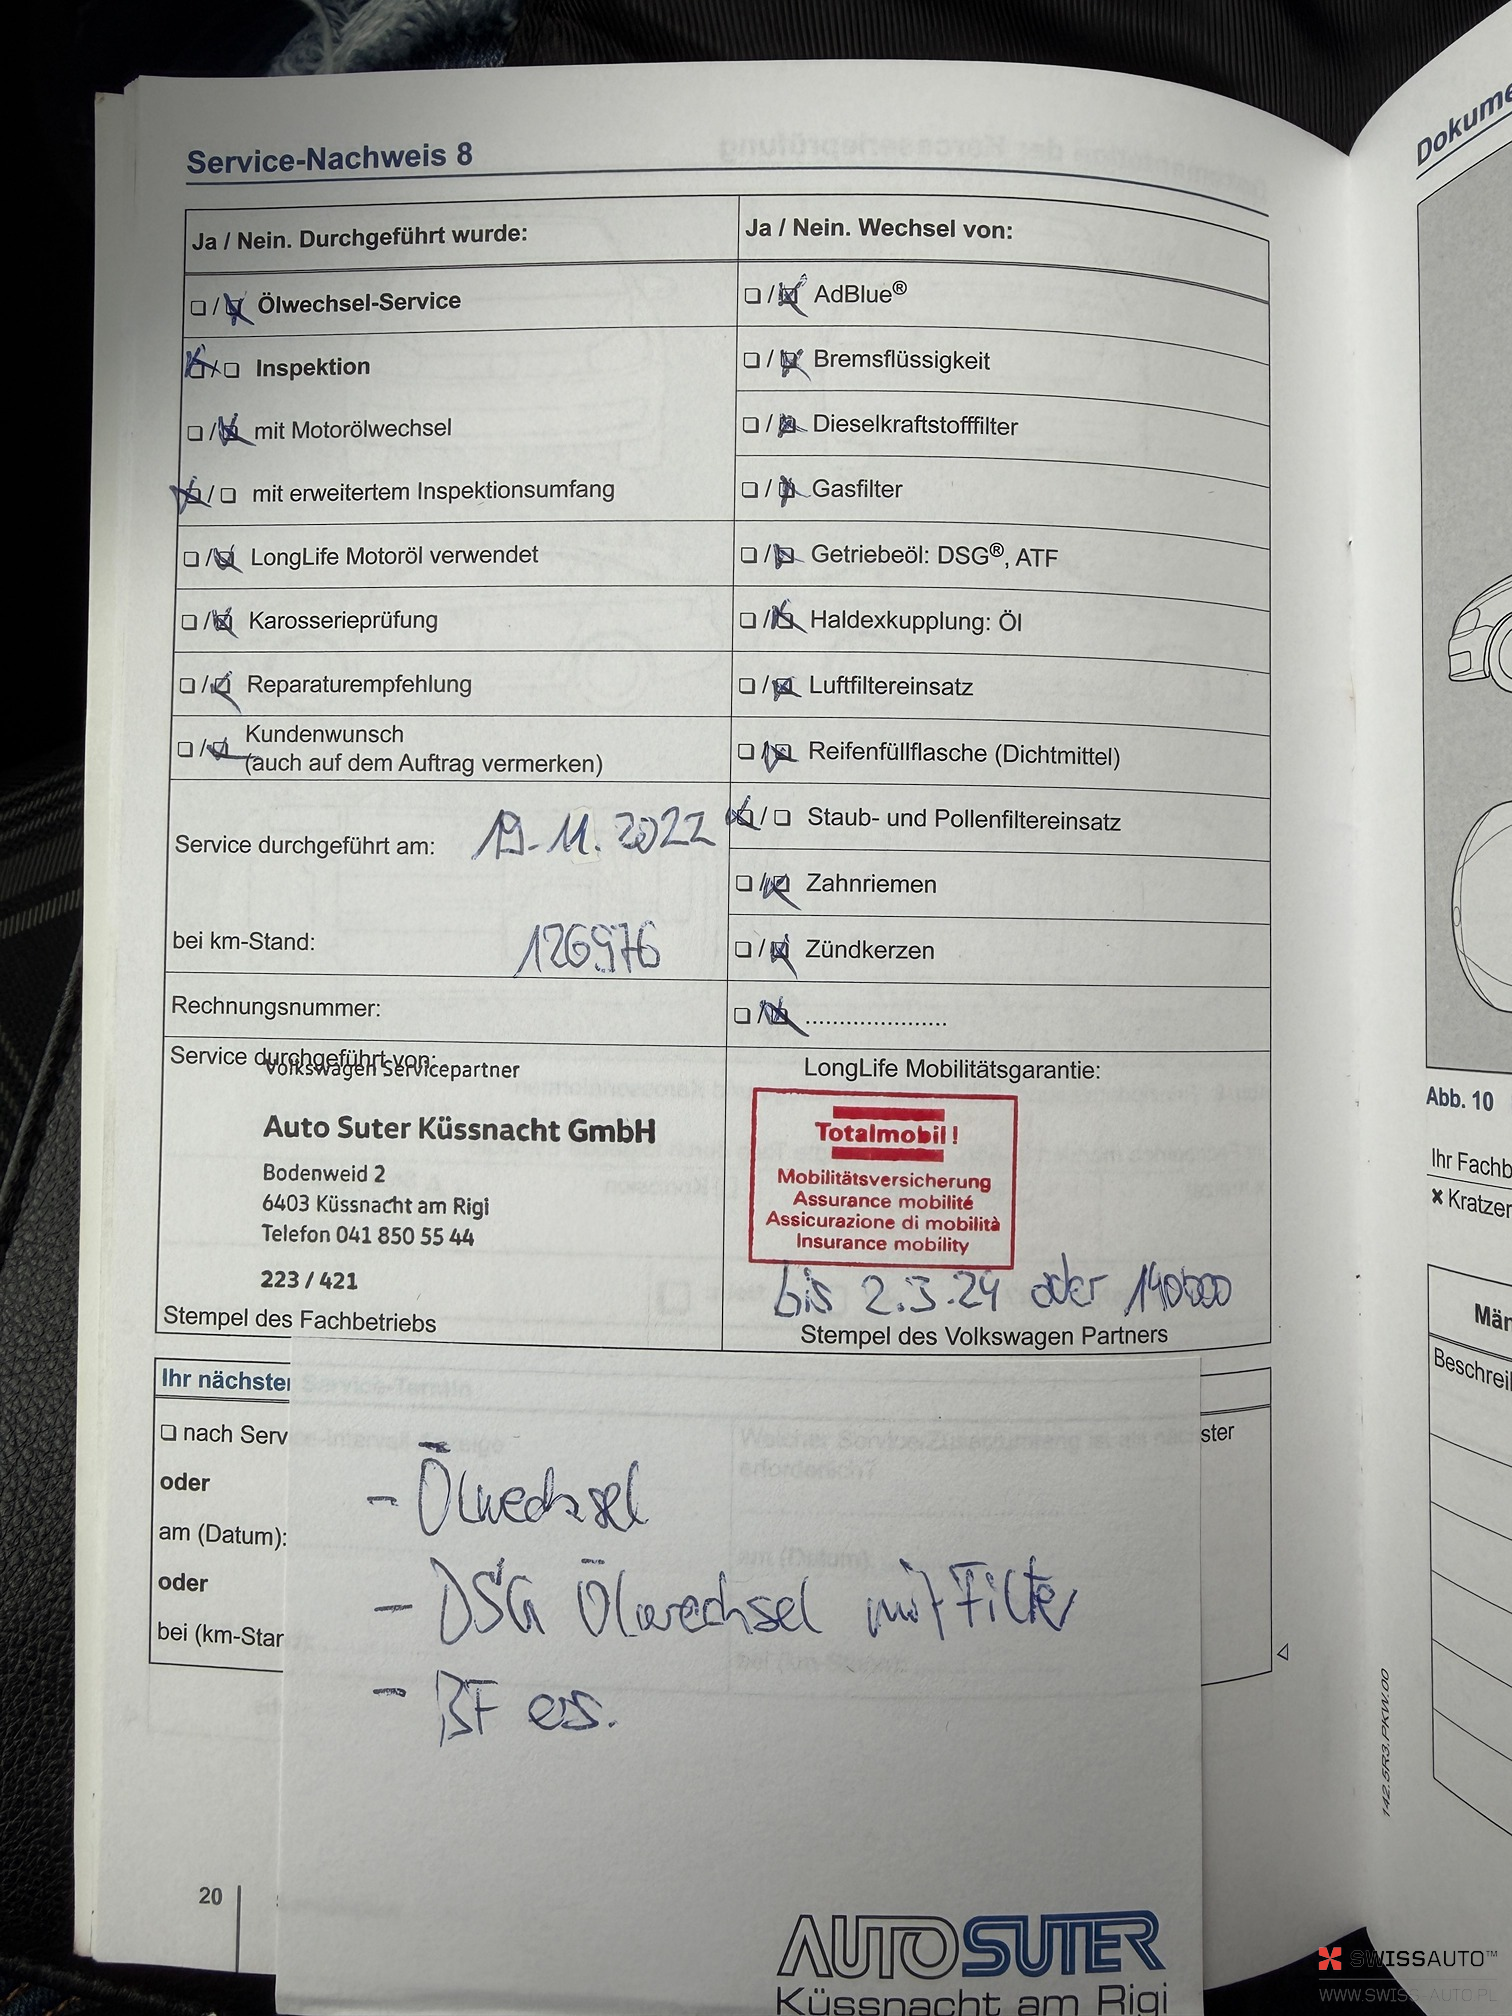 Service-Nachweis 8
Ja / Nein. Durchgeführt wurde:
❏ / ❏ Ölwechsel-Service
❏ / ❏ Inspektion
❏ / ❏ mit Motorölwechsel
❏ / ❏ mit erweitertem Inspektionsumfang
❏ / ❏ LongLife Motoröl verwendet
❏ / ❏ Karosserieprüfung
❏ / ❏ Reparaturempfehlung
❏ / ❏ Kundenwunsch
(auch auf dem Auftrag vermerken)
Service durchgeführt am: 19.11.2022
bei km-Stand: 126976
Rechnungsnummer:
Ja / Nein. Wechsel von:
❏ / ❏ AdBlue®
❏ / ❏ Bremsflüssigkeit
❏ / ❏ Dieselkraftstofffilter
❏ / ❏ Gasfilter
❏ / ❏ Getriebeöl: DSG®, ATF
❏ / ❏ Haldexkupplung: Öl
❏ / ❏ Luftfiltereinsatz
❏ / ❏ Reifenfüllflasche (Dichtmittel)
❏ / ❏ Staub- und Pollenfiltereinsatz
❏ / ❏ Zahnriemen
❏ / ❏ Zündkerzen
❏ / ❏ .....................
Service durchgeführt von:
Volkswagen Servicepartner
Auto Suter Küssnacht GmbH
Bodenweid 2
6403 Küssnacht am Rigi
Telefon 041 850 55 44
223 / 421
Stempel des Fachbetriebs
LongLife Mobilitätsgarantie:
Totalmobil!
Mobilitätsversicherung
Assurance mobilité
Assicurazione di mobilità
Insurance mobility
bis 2.3.24 oder 140000
Stempel des Volkswagen Partners
Ihr nächster Service-Termin
❏ nach Serv
oder
am (Datum):
oder
bei (km-Stan
ster
- Ölwechsel
- DSG Ölwechsel mit Filter
- BF ers.
AUTO SUTER
Küssnacht am Rigi
20
142.5R3.PKW.00
Dokume
Abb. 10
Ihr Fachb
✖ Kratzer
Män
Beschrei
SWISSAUTO™
WWW.SWISS-AUTO.PL